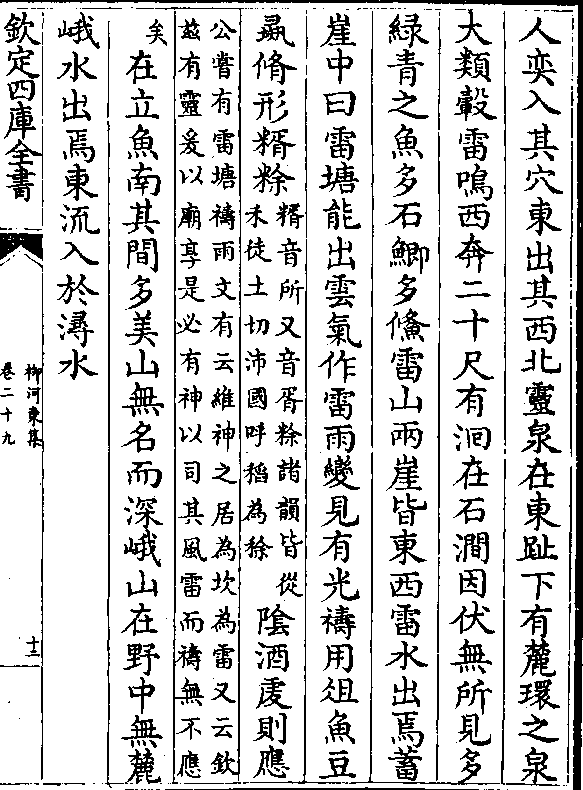 人奕入其穴東出其西北靈泉在東趾下有麓環之泉
大類轂雷鳴西奔二十尺有洄在石澗因伏無所見多
綠青之魚多石鯽多鯈雷山兩崖皆東西雷水出焉蓄
崖中曰雷塘能出雲氣作雷雨變見有光禱用俎魚豆
彘脩形糈稌糈音所又音胥稌諸韻皆從
禾徒土切沛國呼稻為稌陰酒虔則應
公嘗有雷塘禱雨文有云維神之居為坎為雷又云欽
玆有靈爰以廟享是必有神以司其風雷而禱無不應
矣在立魚南其間多美山無名而深峨山在野中無麓
峨水出焉東流入於潯水
欽定四庫全書
柳河東集
卷二十九
十三